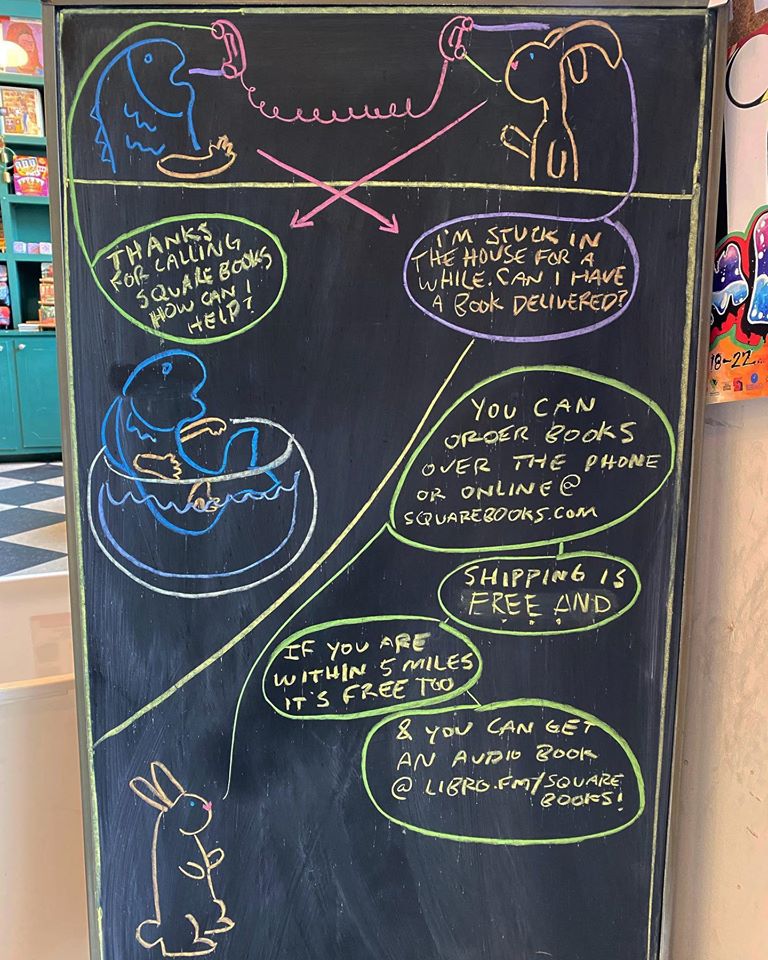 THANKS
FOR CALLING
SQUARE BOOKS
HOW CAN I
HELP?
I'M STUCK IN
THE HOUSE FOR A
WHILE. CAN I HAVE
A BOOK DELIVERED?
YOU CAN
ORDER BOOKS
OVER THE PHONE
OR ONLINE @
SQUAREBOOKS.COM
SHIPPING IS
FREE AND
IF YOU ARE
WITHIN 5 MILES
IT'S FREE TOO
& YOU CAN GET
AN AUDIO BOOK
@ LIBRO.FM/SQUARE
BOOKS!
18-22